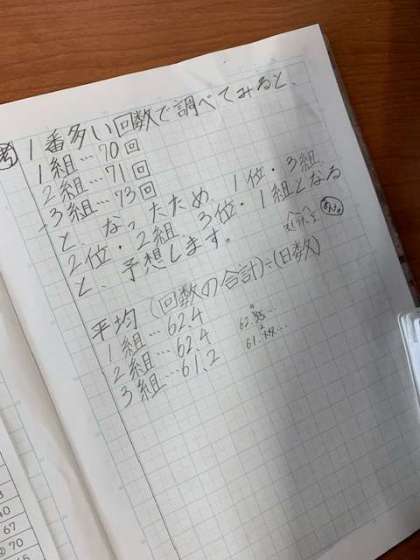 考 1番多い回数で調べてみると、
1組…70回
2組…71回
3組…73回
と、なったため、1位・3組
2位・2組 3位・1組となる
と、予想します。
平均 (回数の合計)÷(日数)
1組…62.4
2組…62.4
3組…61.2
67
②70